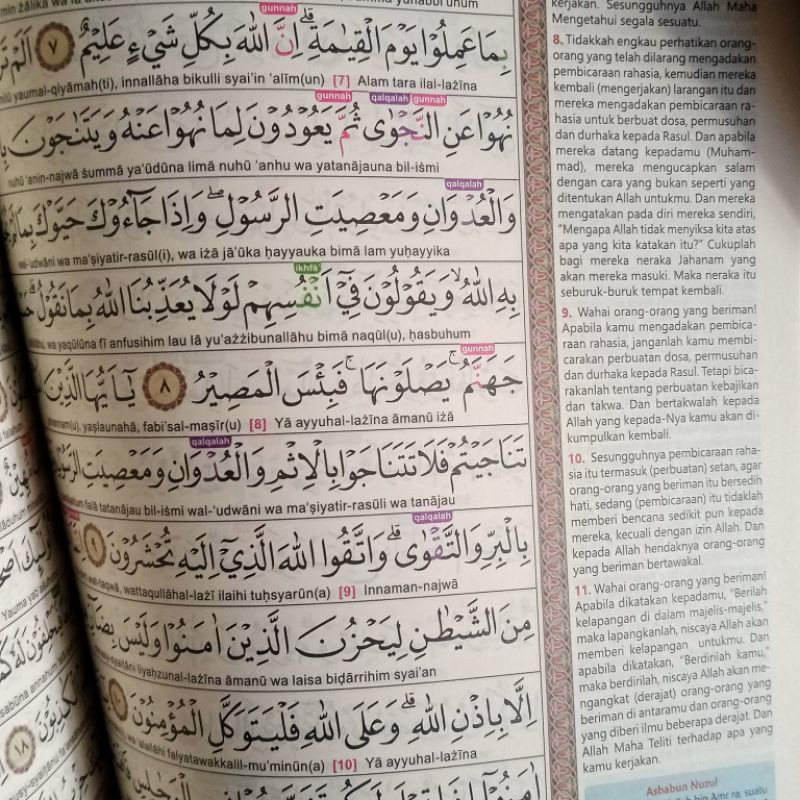 gunnah
بِمَا عَمِلُوْا يَوْمَ الْقِيٰمَةِۗ اِنَّ اللّٰهَ بِكُلِّ شَيْءٍ عَلِيْمٌ ٧ اَلَمْ تَرَ
yaumal-qiyāmah(ti), innallāha bikulli syai'in 'alīm(un) [7] Alam tara ilal-lażīna
gunnah qalqalah gunnah
نُهُوْا عَنِ النَّجْوٰى ثُمَّ يَعُوْدُوْنَ لِمَا نُهُوْا عَنْهُ وَيَتَنٰجَوْنَ
nuhū 'anin-najwā ṡumma ya'ūdūna limā nuhū 'anhu wa yatanājauna bil-iṡmi
qalqalah
وَالْعُدْوَانِ وَمَعْصِيَتِ الرَّسُوْلِۖ وَاِذَا جَاۤءُوْكَ حَيَّوْكَ بِمَا
wal-'udwāni wa ma'ṣiyatir-rasūl(i), wa iżā jā'ūka ḥayyauka bimā lam yuḥayyika
ikhfa
بِهِ اللّٰهُۙ وَيَقُوْلُوْنَ فِيْٓ اَنْفُسِهِمْ لَوْلَا يُعَذِّبُنَا اللّٰهُ بِمَا نَقُوْلُۗ
wa yaqūlūna fī anfusihim lau lā yu'ażżibunallāhu bimā naqūl(u), ḥasbuhum
gunnah
جَهَنَّمُۚ يَصْلَوْنَهَاۚ فَبِئْسَ الْمَصِيْرُ ٨ يٰٓاَيُّهَا الَّذِيْنَ
yaṣlaunahā, fabi'sal-maṣīr(u) [8] Yā ayyuhal-lażīna āmanū iżā
qalqalah
تَنَاجَيْتُمْ فَلَا تَتَنَاجَوْا بِالْاِثْمِ وَالْعُدْوَانِ وَمَعْصِيَتِ الرَّسُوْلِ
falā tatanājau bil-iṡmi wal-'udwāni wa ma'ṣiyatir-rasūli wa tanājau
qalqalah
بِالْبِرِّ وَالتَّقْوٰىۗ وَاتَّقُوا اللّٰهَ الَّذِيْٓ اِلَيْهِ تُحْشَرُوْنَ ٩
wat-taqwā, wattaqullāhal-lażī ilaihi tuḥsyarūn(a) [9] Innaman-najwā
مِنَ الشَّيْطٰنِ لِيَحْزُنَ الَّذِيْنَ اٰمَنُوْا وَلَيْسَ
liyaḥzunal-lażīna āmanū wa laisa biḍārrihim syai'an
اِلَّا بِاِذْنِ اللّٰهِۗ وَعَلَى اللّٰهِ فَلْيَتَوَكَّلِ الْمُؤْمِنُوْنَ ١٠
falyatawakkalil-mu'minūn(a) [10] Yā ayyuhal-lażīna
kerjakan. Sesungguhnya Allah Maha
Mengetahui segala sesuatu.
8. Tidakkah engkau perhatikan orang-
orang yang telah dilarang mengadakan
pembicaraan rahasia, kemudian mereka
kembali (mengerjakan) larangan itu dan
mereka mengadakan pembicaraan ra-
hasia untuk berbuat dosa, permusuhan
dan durhaka kepada Rasul. Dan apabila
mereka datang kepadamu (Muham-
mad), mereka mengucapkan salam
dengan cara yang bukan seperti yang
ditentukan Allah untukmu. Dan mereka
mengatakan pada diri mereka sendiri,
"Mengapa Allah tidak menyiksa kita atas
apa yang kita katakan itu?" Cukuplah
bagi mereka neraka Jahanam yang
akan mereka masuki. Maka neraka itu
seburuk-buruk tempat kembali.
9. Wahai orang-orang yang beriman!
Apabila kamu mengadakan pembica-
raan rahasia, janganlah kamu membi-
carakan perbuatan dosa, permusuhan
dan durhaka kepada Rasul. Tetapi bica-
rakanlah tentang perbuatan kebajikan
dan takwa. Dan bertakwalah kepada
Allah yang kepada-Nya kamu akan di-
kumpulkan kembali.
10. Sesungguhnya pembicaraan raha-
sia itu termasuk (perbuatan) setan, agar
orang-orang yang beriman itu bersedih
hati, sedang (pembicaraan) itu tidaklah
memberi bencana sedikit pun kepada
mereka, kecuali dengan izin Allah. Dan
kepada Allah hendaknya orang-orang
yang beriman bertawakal.
11. Wahai orang-orang yang beriman!
Apabila dikatakan kepadamu, "Berilah
kelapangan di dalam majelis-majelis,"
maka lapangkanlah, niscaya Allah akan
memberi kelapangan untukmu. Dan
apabila dikatakan, "Berdirilah kamu,"
maka berdirilah, niscaya Allah akan me-
ngangkat (derajat) orang-orang yang
beriman di antaramu dan orang-orang
yang diberi ilmu beberapa derajat. Dan
Allah Maha Teliti terhadap apa yang
kamu kerjakan.
Asbabun Nuzul